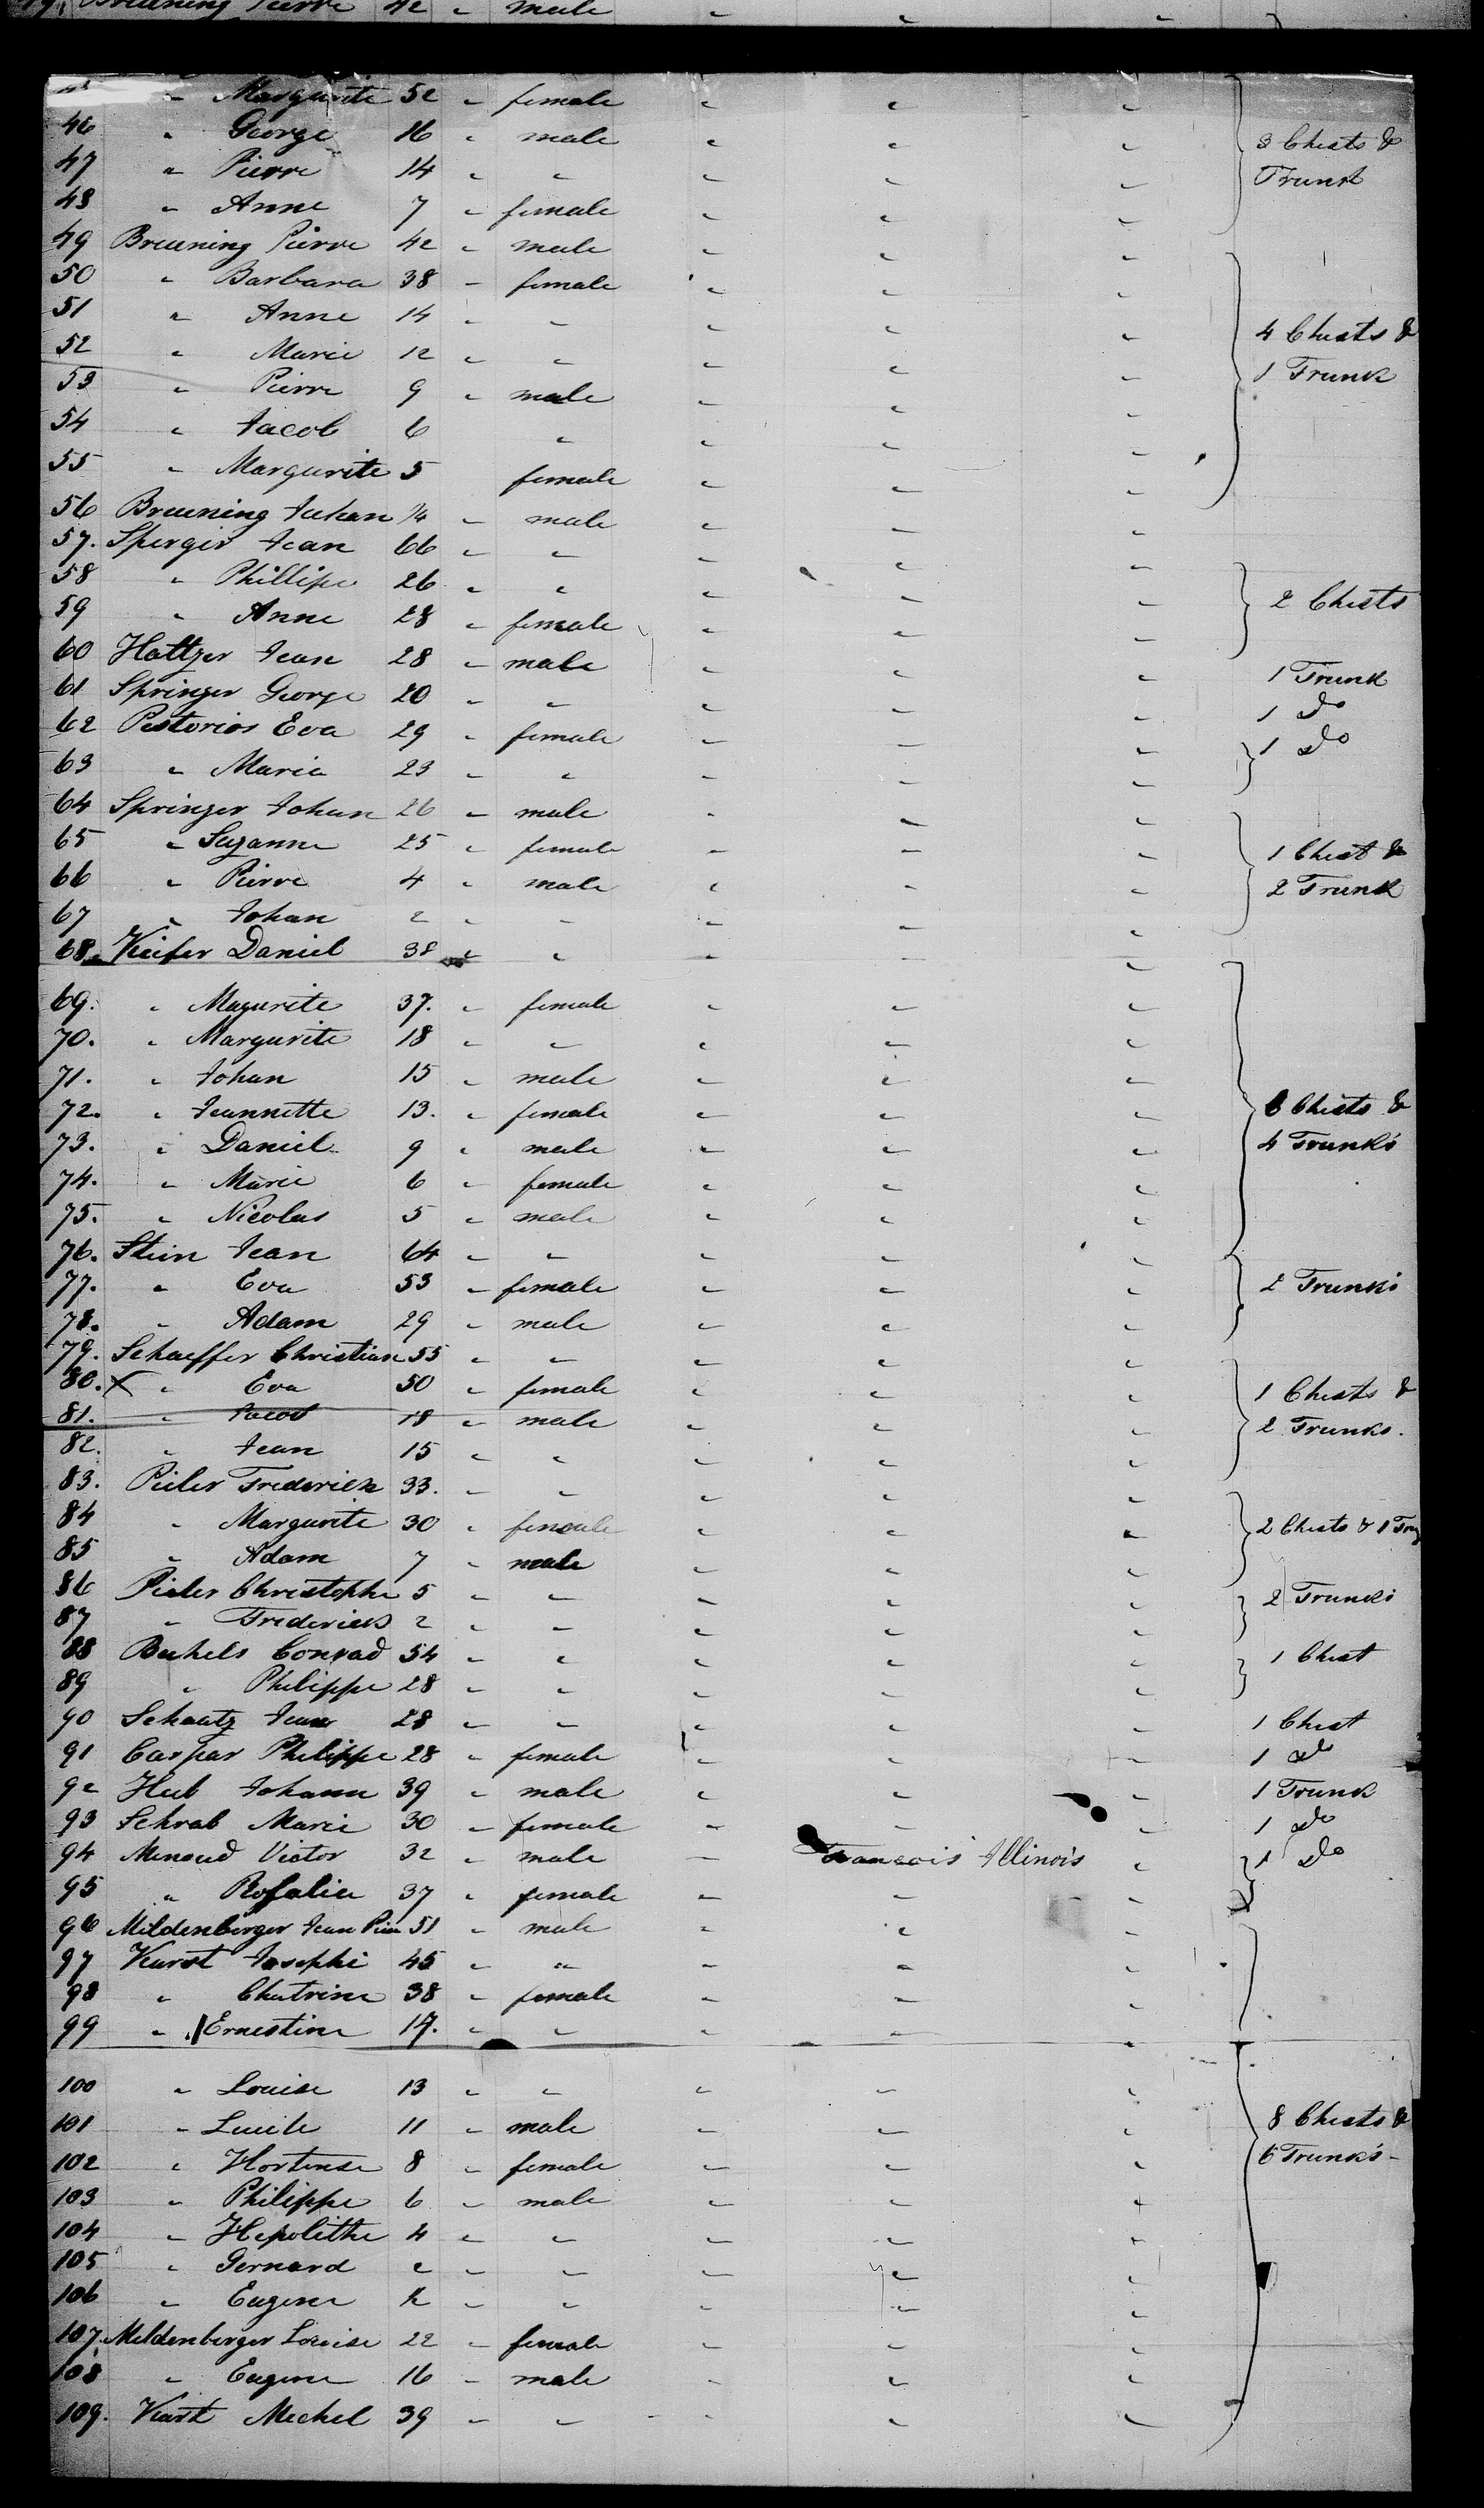 49. Breuning Pierre 42 " male " " "
45 " Margurite 52 " female " " "
46 " George 16 " male " " " 3 Chests &
47 " Pierre 14 " " " " " Trunk
48 " Anne 7 " female " " "
49 Breuning Pierre 42 " male " " "
50 " Barbara 38 " female " " "
51 " Anne 14 " " " " " 4 Chests &
52 " Marie 12 " " " " " 1 Trunk
53 " Pierre 9 " male " " "
54 " Jacob 6 " " " "
55 " Margurite 5 female " " "
56 Breuning Johan 14 " male " " "
57. Sperger Jean 66 " " " " "
58 " Phillipe 26 " " " " " 2 Chests
59 " Anne 28 " female " " "
60 Hattzer Jean 28 " male " " " 1 Trunk
61 Springer George 20 " " " " " 1 do
62 Pistorios Eva 29 " female " " " 1 do
63 " Maria 23 " " " " "
64 Springer Johan 26 " male " " "
65 " Suzanne 25 " female " " " 1 Chest &
66 " Pierre 4 " male " " " 2 Trunk
67 " Johan 2 " " " " "
68. Keifer Daniel 38 " " " " "
69. " Magurite 37. " female " " "
70. " Margurite 18 " " " " "
71. " Johan 15 " male " " "
72. " Jeannette 13. " female " " " 6 Chests &
73. " Daniel 9 " male " " " 4 Trunk's
74. " Marie 6 " female " " "
75. " Nicolas 5 " male " " "
76. Stein Jean 64 " " " " "
77. " Eva 53 " female " " " 2 Trunk's
78. " Adam 29 " male " " "
79. Schaeffer Christian 55 " " " " "
80. X " Eva 50 " female " " " 1 Chests &
81. " Jacob 18 " male " " " 2 Trunks.
82. " Jean 15 " " " " "
83. Pieler Frederick 33. " " " " "
84 " Margurite 30 " female " " " 2 Chests & 1
85 " Adam 7 " male " " "
86 Pieler Christophe 5 " " " " " 2 Trunks
87 " Frederick 2 " " " " "
88 Buhels Conrad 54 " " " " " 1 Chest
89 " Philippe 28 " " " " "
90 Schautz Jean 28 " " " " " 1 Chest
91 Carpar Philippe 28 " female " " " 1 do
92 Heub Johann 39 " male " " " 1 Trunk
93 Schrab Marie 30 " female " " " 1 do
94 Menoud Victor 32 " male " Francois Illinois " 1 do
95 " Rosalie 37 " female " " "
96 Mildenberger Jean Pier 51 " male " " "
97 Karst Josephe 45 " " " " "
98 " Chatrine 38 " female " " "
99 " Ernestine 17. " " " " "
100 " Louise 13 " " " " "
101 " Lucile 11 " male " " " 8 Chests &
102 " Hortense 8 " female " " " 6 Trunk's -
103 " Philippe 6 " male " " "
104 " Hepolithe 4 " " " " "
105 " Gernard 2 " " " " "
106 " Eugene " " " " "
107. Meldenberger Louise 22 " female " " "
108 " Eugene 16 " male " " "
109. Karst Mechel 39 " " " " "